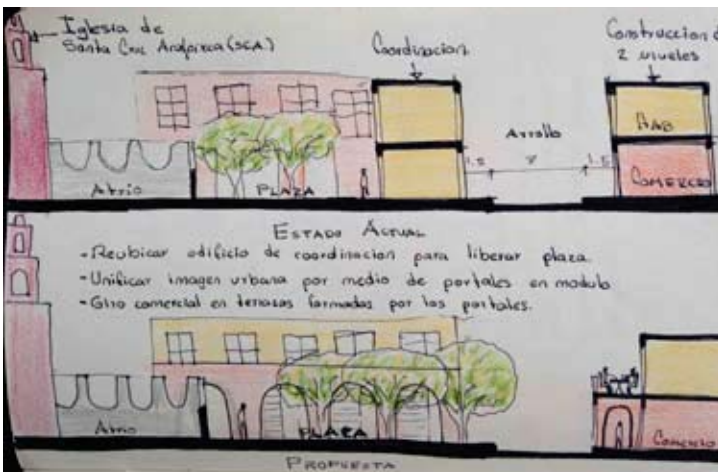 Iglesia de
Santa Cruz Atoyac (SCA.)
Coordinacion
Construccion d
2 niveles
Arrollo
HAB
1.5
1.5
COMERCIO
Atrio
PLAZA
ESTADO ACTUAL
- Reubicar edificio de coordinacion para liberar plaza.
- Unificar imagen urbana por medio de portales en modulo
- Giro comercial en terrazas formadas por los portales.
Atrio
PLAZA
Comercio
PROPUESTA